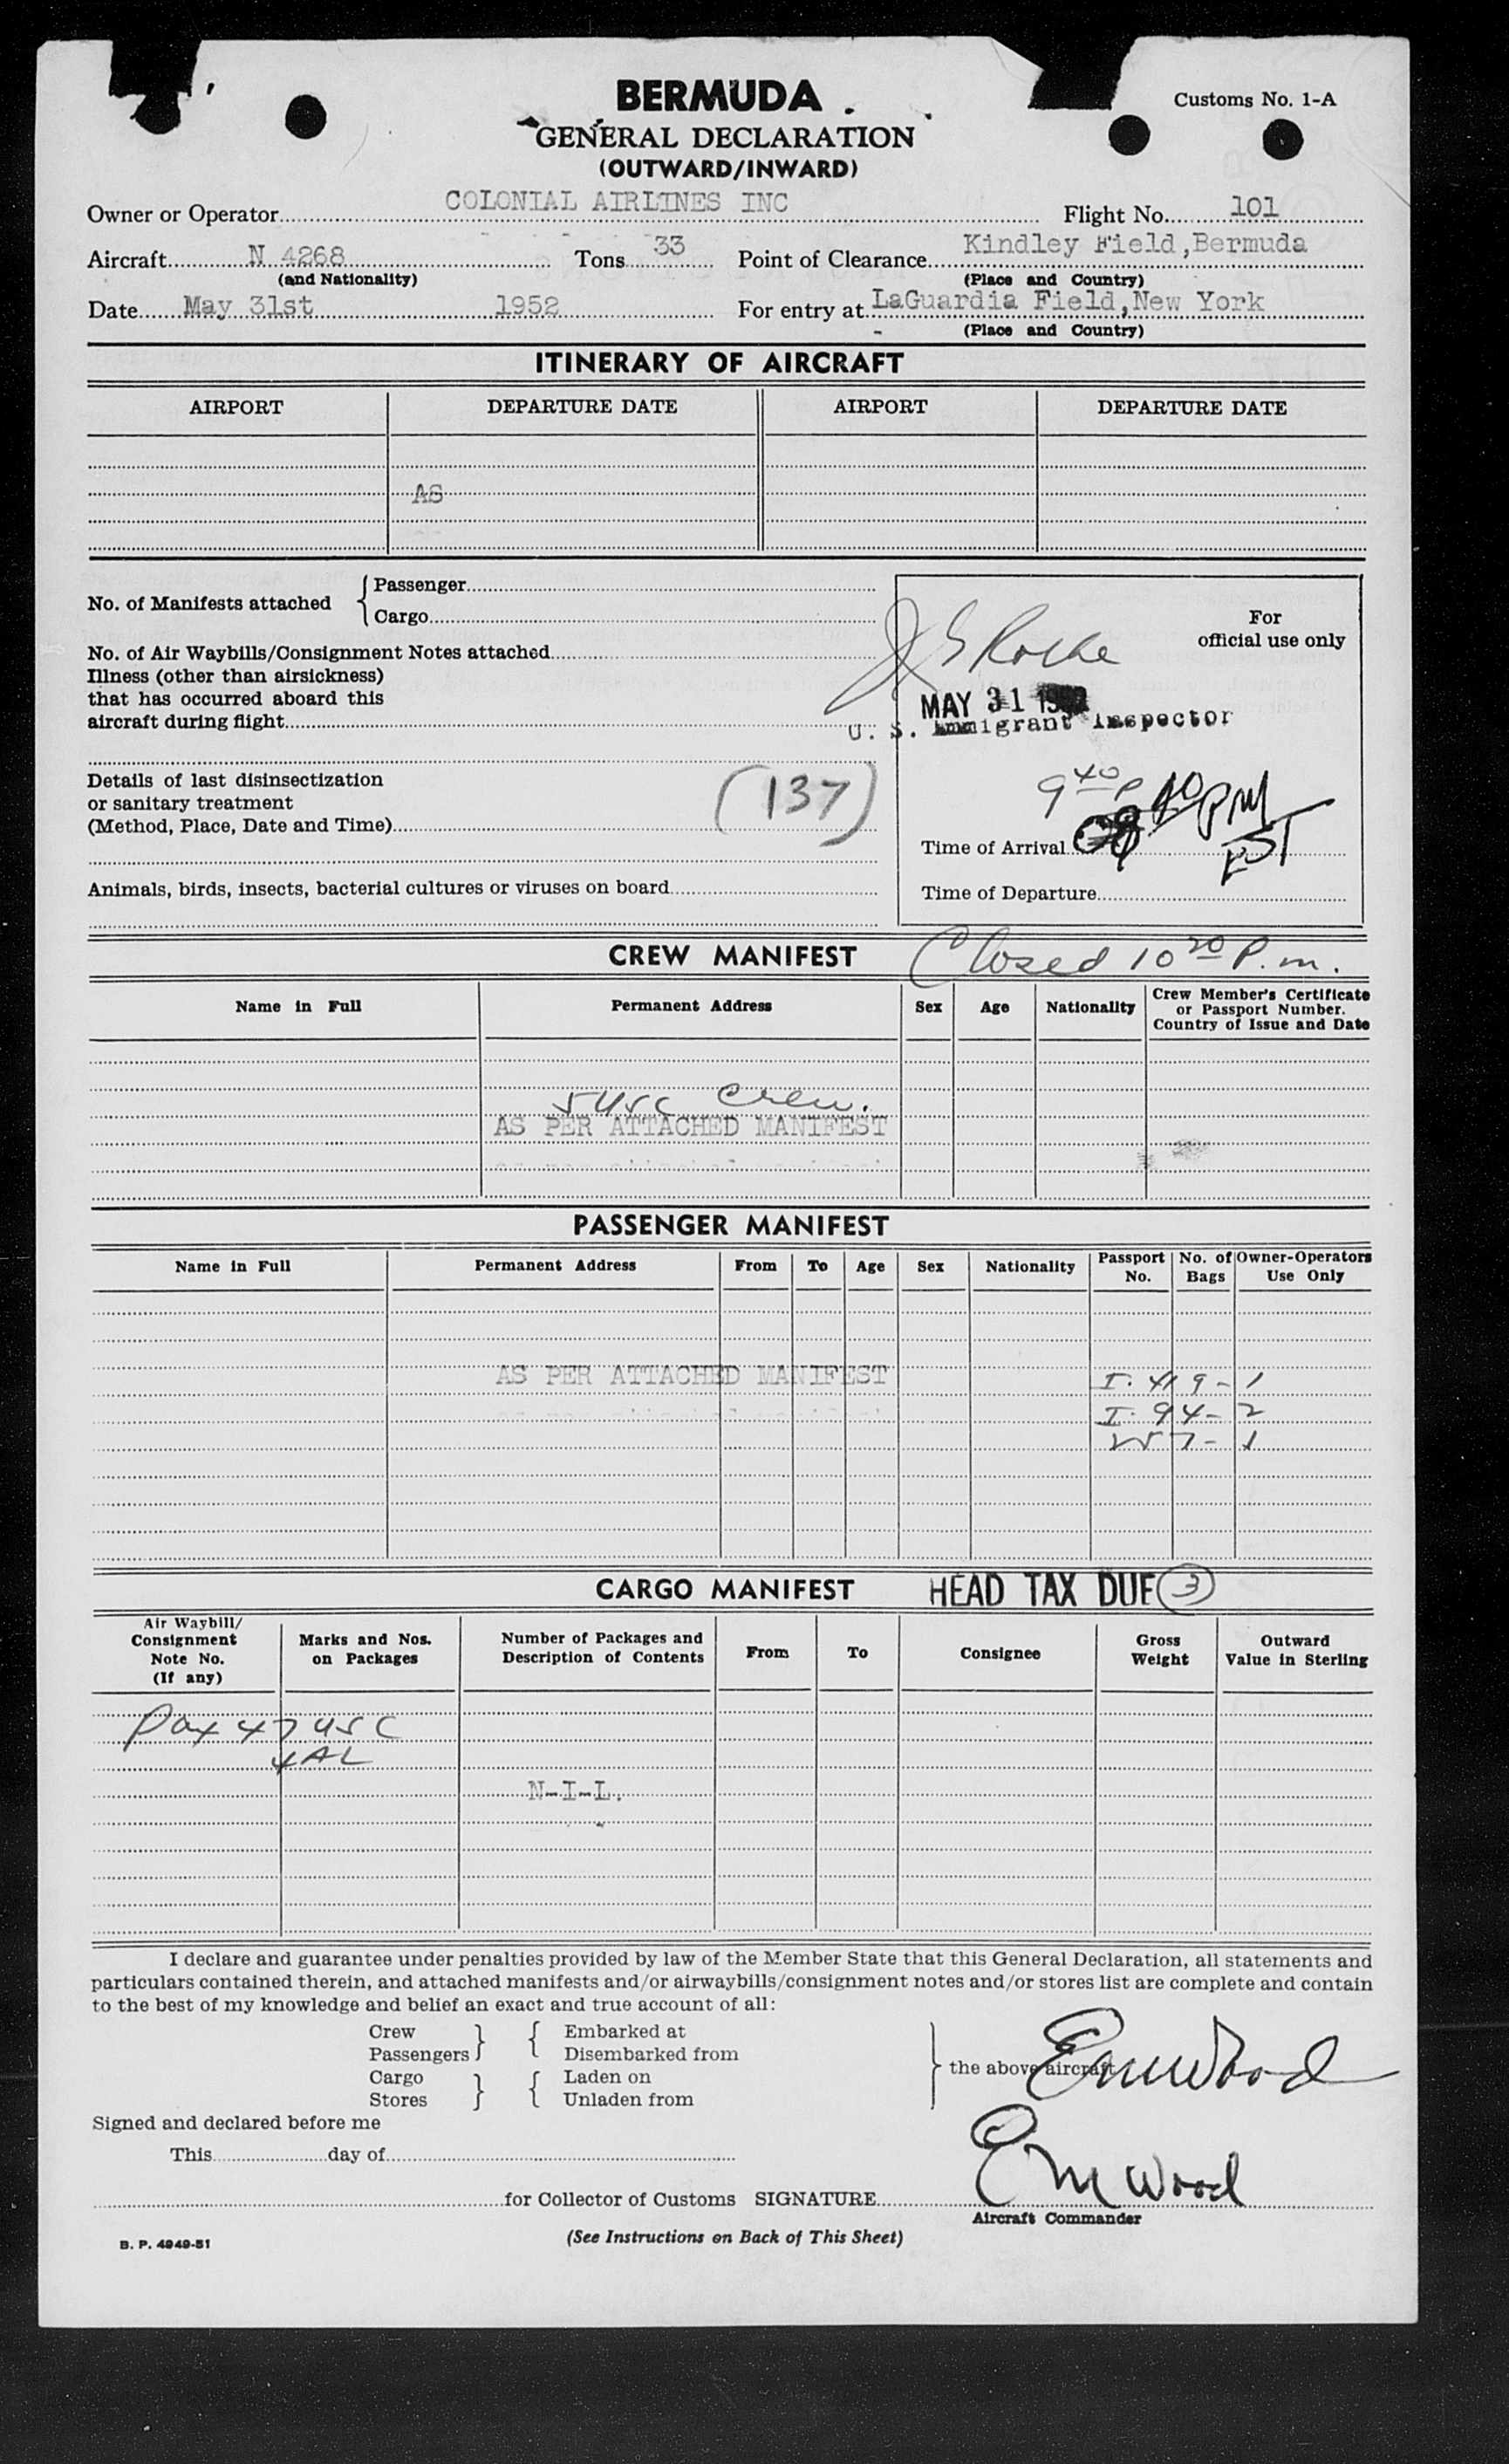 BERMUDA
Customs No. 1-A
GENERAL DECLARATION
(OUTWARD/INWARD)
Owner or Operator COLONIAL AIRLINES INC Flight No. 101
Aircraft N 4268 Tons 33 Point of Clearance Kindley Field,Bermuda
(and Nationality) (Place and Country)
Date May 31st 1952 For entry at LaGuardia Field,New York
(Place and Country)
ITINERARY OF AIRCRAFT
AIRPORT DEPARTURE DATE AIRPORT DEPARTURE DATE
AS
No. of Manifests attached { Passenger
Cargo
For
official use only
No. of Air Waybills/Consignment Notes attached
Illness (other than airsickness)
that has occurred aboard this
aircraft during flight
MAY 31
U. S. Immigrant Inspector
Details of last disinsectization
or sanitary treatment
(Method, Place, Date and Time)
(137)
9 40 P
40 PM
EST
Time of Arrival
Animals, birds, insects, bacterial cultures or viruses on board
Time of Departure
CREW MANIFEST
Closed 10 20 P.m.
Name in Full Permanent Address Sex Age Nationality Crew Member's Certificate
or Passport Number.
Country of Issue and Date
5 USC Crew.
AS PER ATTACHED MANIFEST
PASSENGER MANIFEST
Name in Full Permanent Address From To Age Sex Nationality Passport No. No. of Bags Owner-Operators Use Only
AS PER ATTACHED MANIFEST
I. 419 - 1
I. 94 - 2
1
CARGO MANIFEST HEAD TAX DUE 3
Air Waybill/
Consignment
Note No.
(If any)
Marks and Nos.
on Packages
Number of Packages and
Description of Contents
From To Consignee
Gross
Weight
Outward
Value in Sterling
Pax 47 USC
4 AL
N-I-L.
I declare and guarantee under penalties provided by law of the Member State that this General Declaration, all statements and
particulars contained therein, and attached manifests and/or airwaybills/consignment notes and/or stores list are complete and contain
to the best of my knowledge and belief an exact and true account of all:
Crew } { Embarked at
Passengers Disembarked from
Cargo } { Laden on
Stores Unladen from
} the above aircraft
EmWood
Signed and declared before me
This day of
for Collector of Customs SIGNATURE Em Wood
Aircraft Commander
B. P. 4949-51
(See Instructions on Back of This Sheet)